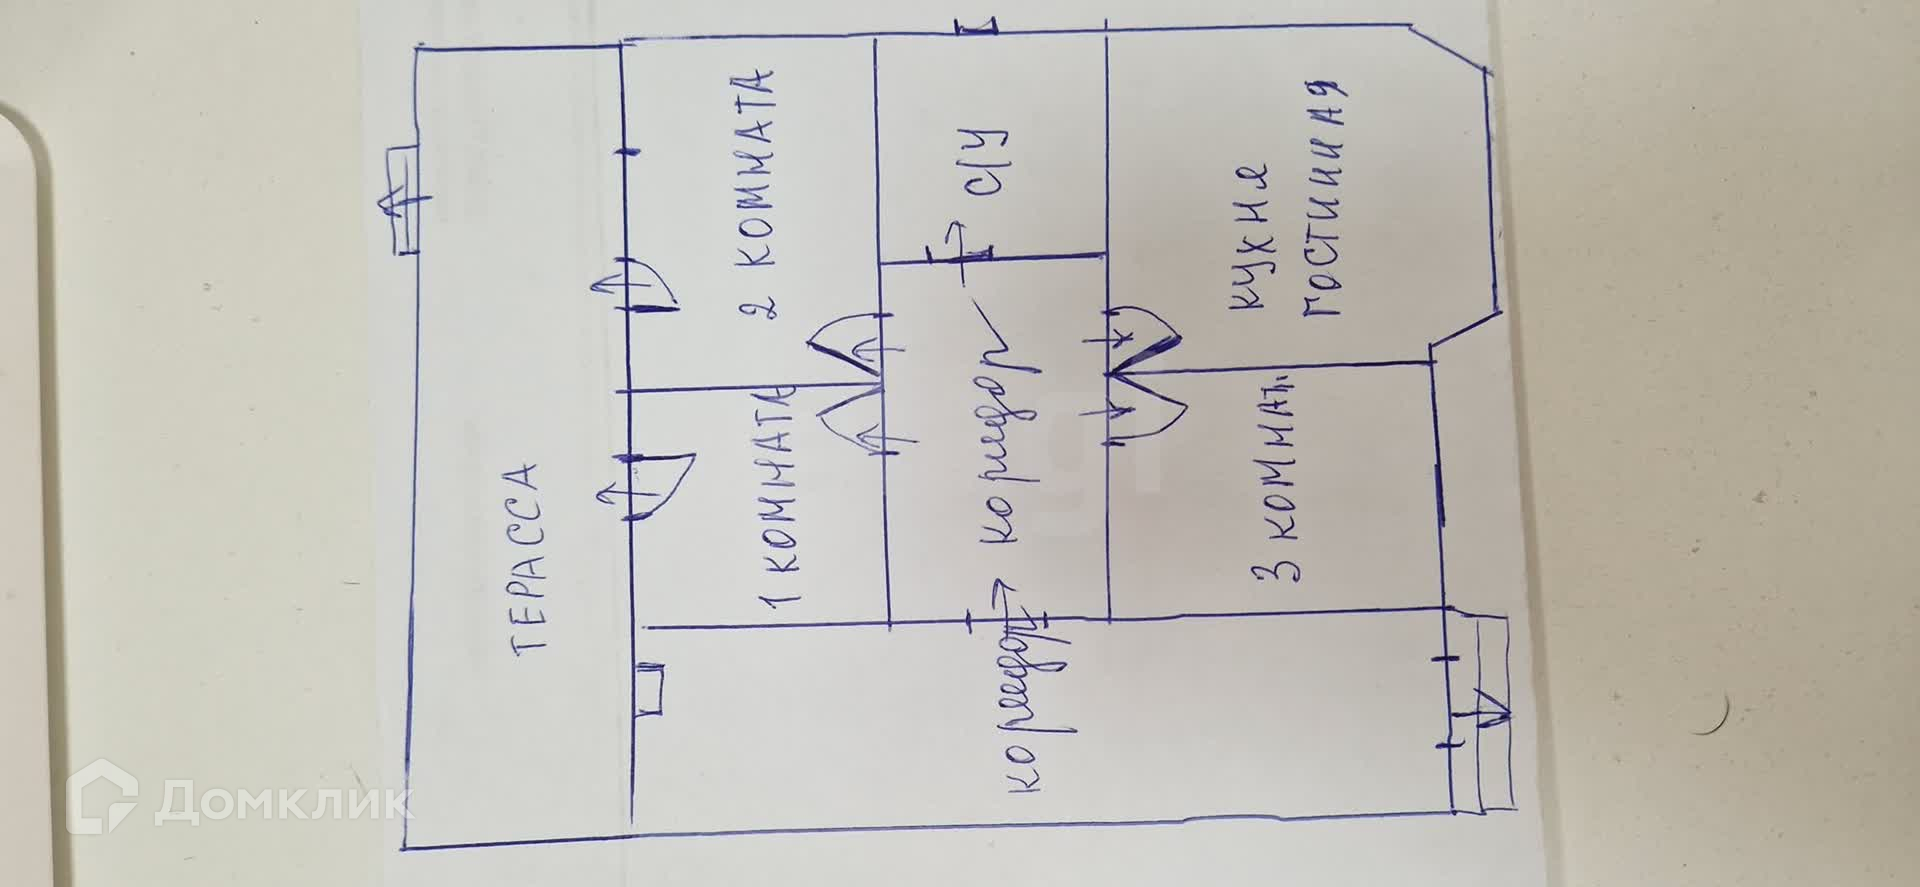 ТЕРАССА
2 КОМНАТА
1 КОМНАТА
С/У
коридор
коредор
КУХНЯ
ГОСТИНАЯ
3 КОМНАТ.
Домклик